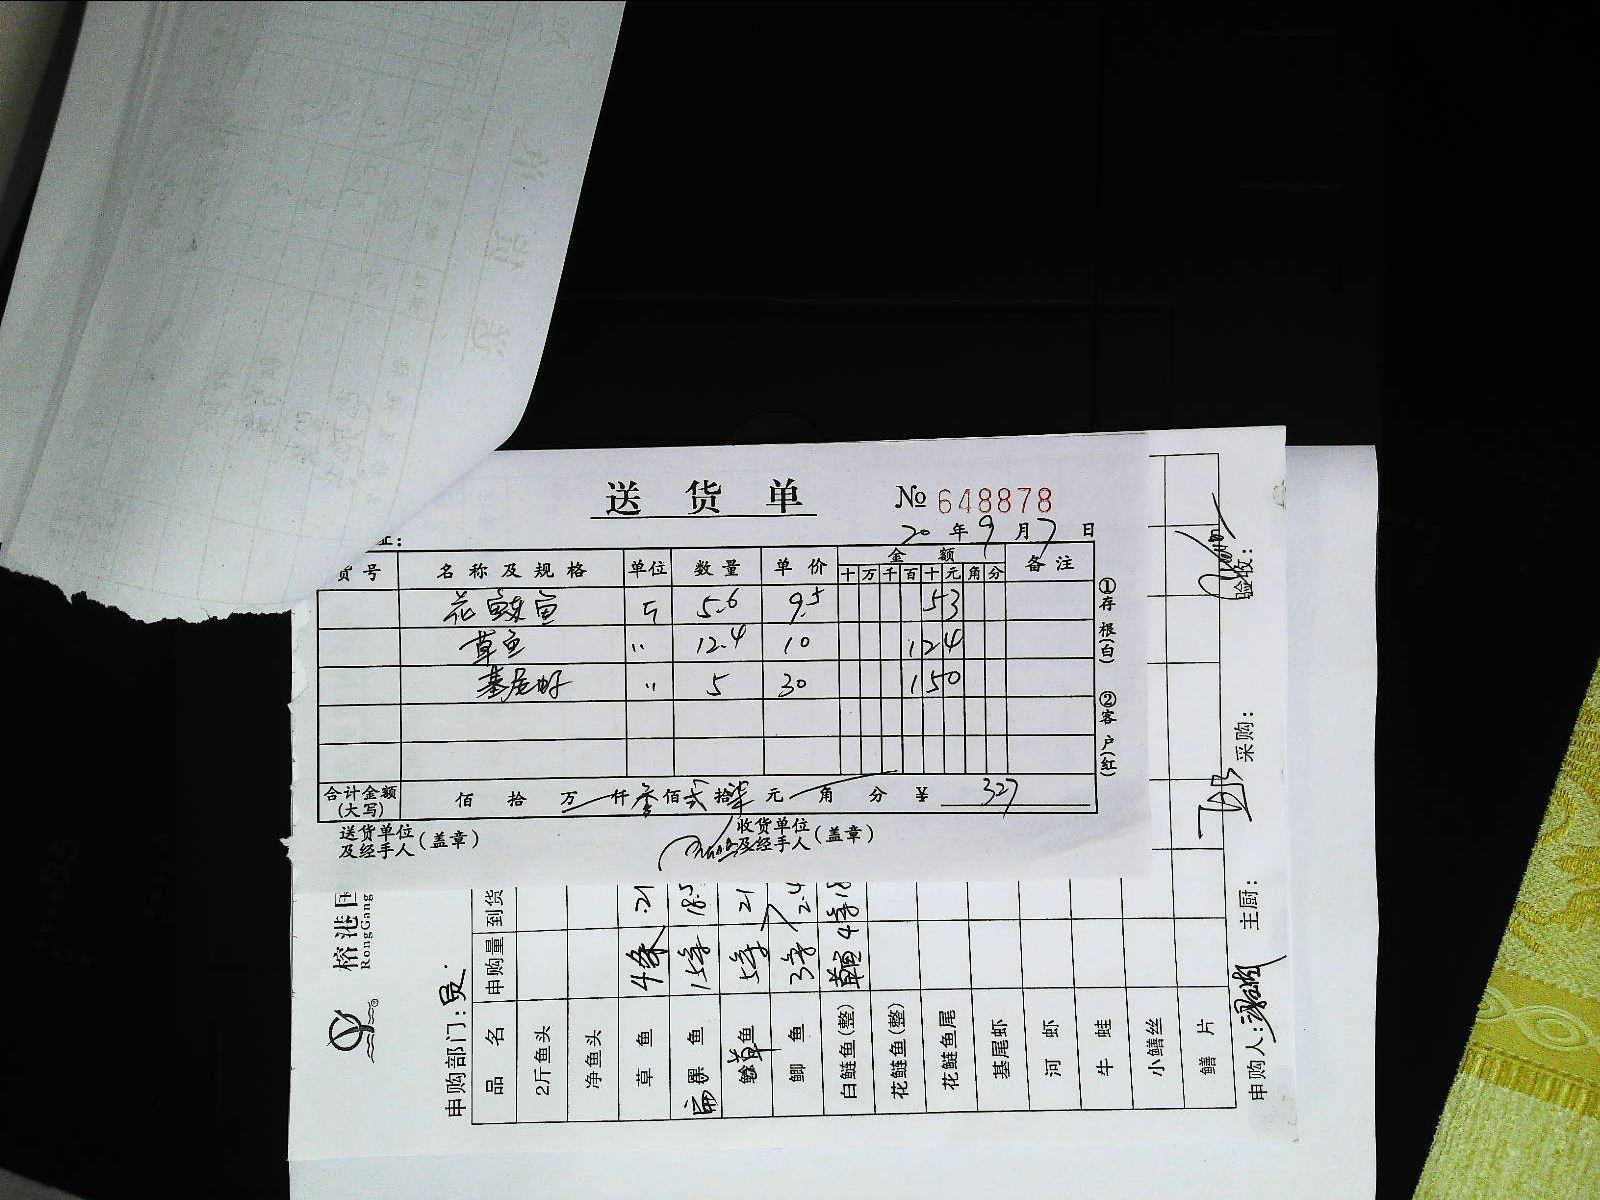 送 货 单 № 648878
20 年 9 月 7 日
址:
货号 名称及规格 单位 数量 单价 金额 备注
十 万 千 百 十 元 角 分
花鲢鱼 斤 5.6 9.5 53
草鱼 〃 12.4 10 124
基尾虾 〃 5 30 150
合计金额(大写) 佰 拾 万 仟 叁 佰 贰 拾 柒 元 角 分 ¥ 327
送货单位及经手人(盖章) 收货单位及经手人(盖章)
①存根(白) ②客户(红)
榕港国
RongGang
申购部门:
品名 申购量 到货
2斤鱼头
净鱼头
草鱼 4条 21
鱼 15斤 18.5
草鱼 5斤 21
鲫鱼 3斤 2.4
白鲢鱼(整) 草鱼 4斤 18
花鲢鱼(整)
花鲢鱼尾
基尾虾
河虾
牛蛙
小鳝丝
鳝片
申购人: 主厨: 采购: 验收: